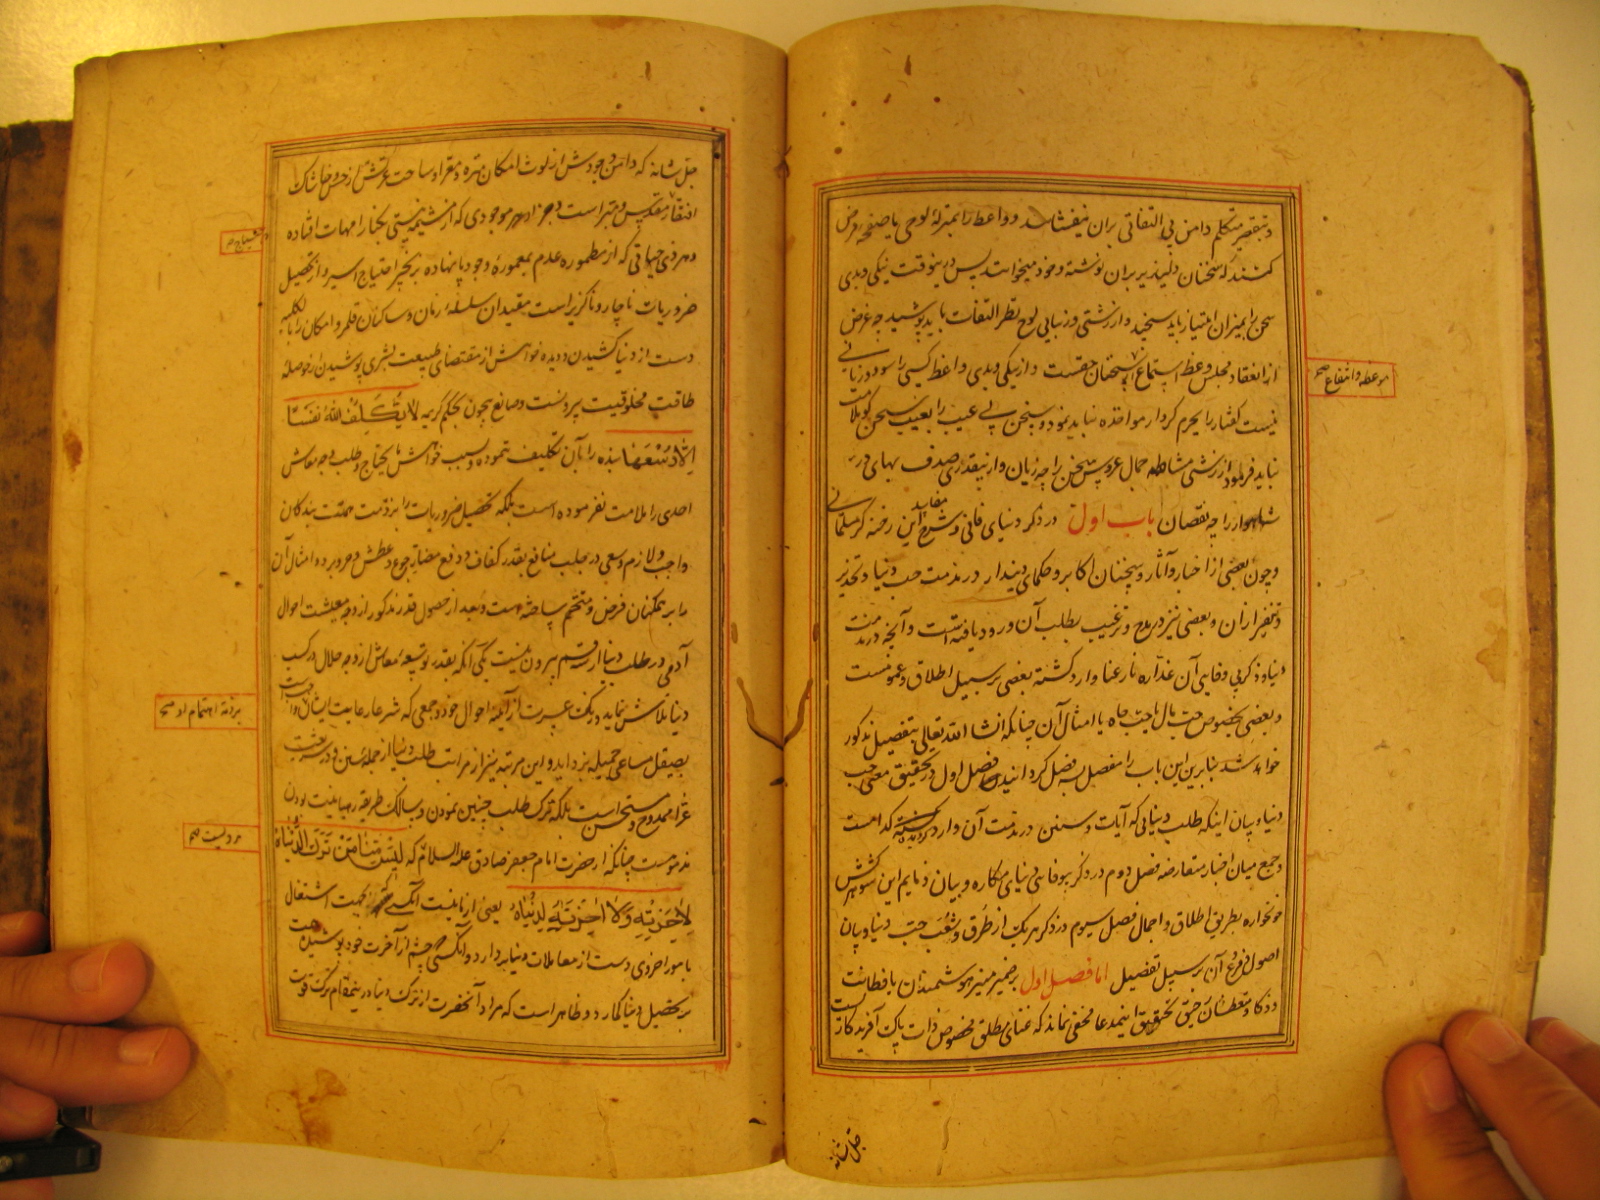 و بتقصیر متکلم دامن بی التفاتی بران نیفشاند و واعظ را بمنزله لوحی یا صفحه فرض
کنند که سخنان دلپذیر بران نوشته و خود میخوانند پس درینوقت نیکی و بدی
سخن را بمیزان امتیاز باید سنجید و از زشتی و زیبایی لوح نظر التفات باید پوشید چه غرض
از انعقاد مجلس وعظ استماع سخنان حقست و از نیکی و بدی واعظ کسی را سود و زیانی
نیست گفتار را بجرم کردار مواخذه نباید نمود و سخن بی عیب را بعیب سخن کو ملامت
نباید فرمود از زشتی مشاطه جمال عروس سخن را چه زیان و از بیقدری صدف بهای در
شاهوار را چه نقصان باب اول در ذکر دنیای فانی و شرح مفاسد این رخنه گر مسلمانی
و چون بعضی از اخبار و آثار و سخنان اکابر و حکمای دیندار در مذمت حب دنیا و تحذیر
و تنفیر از ان و بعضی نیز در مدح و ترغیب بطلب آن ورود یافته است و آنچه در مذمت
دنیا و ذکر بی وفایی آن غداره نارعنا وارد کشته بعضی بر سبیل اطلاق و عمومست
و بعضی بخصوص حب مال یا حب جاه یا امثال آن چنانکه انشا الله تعالی بتفصیل مذکور
خواهد شد بنابرین این باب را مفصل بسه فصل کردانید فصل اول در تحقیق معنی حب
دنیا و بیان اینکه طلب دنیایی که آیات و سنن در مذمت آن وارد کردیده کدامست
و جمع میان اخبار متعارضه فصل دوم در ذکر بیوفایی دنیای مکاره و بیان ذمایم این شوهرکش
خونخواره بطریق اطلاق و اجمال فصل سیوم در ذکر هر یک از طرق و شعب حب دنیا و بیان
اصول و فروع آن بر سبیل تفصیل اما فصل اول بر ضمیر منیر هوشمندان با فطانت
و ذکا و متعطشان رحیق تحقیق اینمدعا مخفی نماند که غنای مطلق مخصوص ذات پاک آفریدکاریست
جل شانه
موعظه و انتفاع صح
جل شانه که دامن وجودش از لوث امکان منزه و معرا و ساحت عزتش از خس و خاشاک
افتقار مقدس و مبراست و جز او هر موجودی که از نشیمن نیستی بکنار امهات افتاده
و هر ذی حیاتی که از مطموره عدم بمعموره وجود پا نهاده بزنجیر احتیاج اسیر و از تحصیل
ضروریات ناچار و ناگزیر است مقیدان سلسله زمان و ساکنان قلمرو امکان را بالکلیه
دست از دنیا کشیدن و دیده خواهش از مقتضای طبیعت بشری پوشیدن از حوصله
طاقت مخلوقیت بیرونست و صانع بیچون بحکم کریمه لا یُکَلِّفُ اللهُ نَفْسًا
اِلّا وُسْعَها بنده را بآن تکلیف ننموده و بسبب خواهش مایحتاج و طلب وجه معاش
احدی را ملامت نفرموده است بلکه تحصیل ضروریات را بر ذمت همت بندکان
واجب و لازم و سعی در جلب منافع بقدر کفاف و دفع مضار جوع و عطش و حر و برد و امثال آن
را بر همکنان فرض و متحتم ساخته است و بعد از حصول قدر مذکور از وجه معیشت احوال
آدمی در طلب دنیا از سه قسم بیرون نیست یکی آنکه بقدر توسعه معاش از وجه حلال در کسب
دنیا تلاش نماید و زنک عسرت از آینه احوال خود و جمعی که شرعا رعایت ایشان واجبست
بصیقل مساعی جمیله بزداید و این مرتبه نیز از مراتب طلب دنیا از جمله سنن و در شریعت
غرا ممدوح و مستحسن است بلکه ترک طلب چنین نمودن و سالک طریقه رهبانیت بودن
مذمومست چنانکه از حضرت امام جعفر صادق علیه السلام که لَیْسَ مِنّا مَنْ تَرَکَ الدُّنْیاهُ
لِاخِرَتِهِ وَلا اخِرَتَهُ لِدُنْیاهُ یعنی از ما نیست آنکسی که بجهت اشتغال
بامور اخروی دست از معاملات دنیا بردارد و آنکسی که چشم از آخرت خود پوشیده همت
بر تحصیل دنیا کمارد و ظاهر است که مراد آنحضرت از ترک دنیا درینمقام ترک قوت
بر ذمه اهتمام او صح